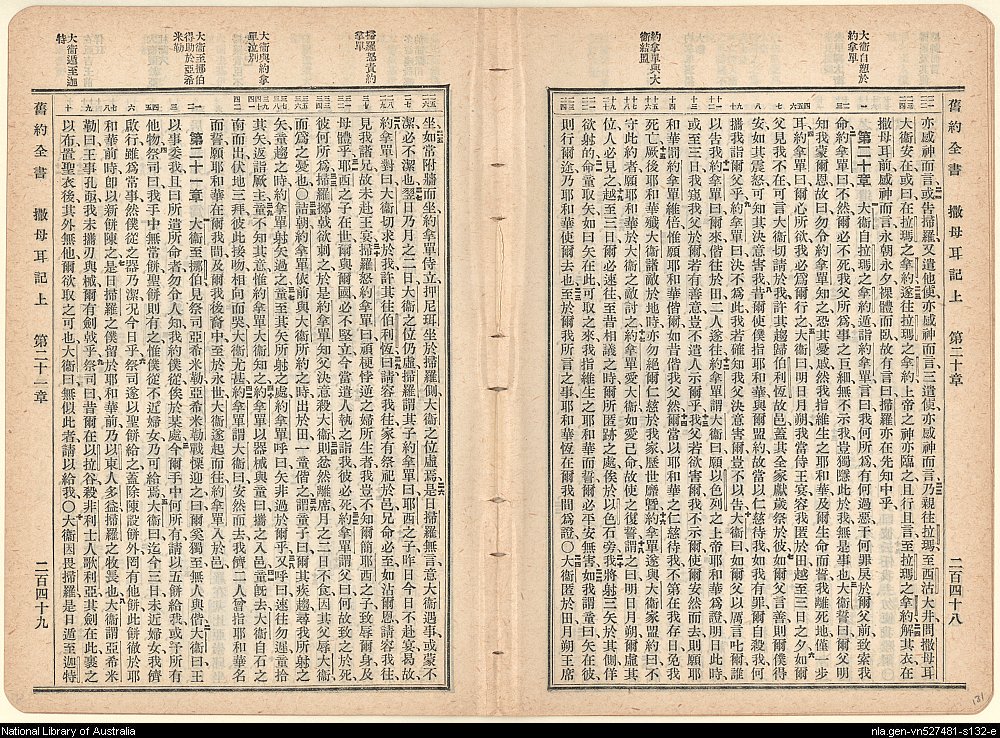 大衛自愬於約拿單
約拿單與大衛結盟
舊約全書 撒母耳記上 第二十章 二百四十八
亦感神而言或告掃羅又遣他使亦感神而言三遣使亦感神而言乃親往拉瑪至西沽大井問撒母耳
大衛安在或曰在拉瑪之拿約遂往拉瑪之拿約上帝之神亦臨之且行且言至拉瑪之拿約解其衣在
撒母耳前感神而言永朝永夕裸體而臥故有言曰掃羅亦在先知中乎
第二十章 大衛自拉瑪之拿約遁詣約拿單曰我何所爲有何過惡干何罪戾於爾父前致索我
命約拿單曰不然爾必不死我父所爲事之巨細無不示我豈獨隱此於我無是事也大衛誓曰爾父明
知我蒙爾恩故曰勿令約拿單知之恐其憂慼然我指維生之耶和華及爾生命而誓我離死地僅一步
耳約拿單曰爾心所欲我必爲爾行之大衛曰明日月朔我當侍王宴容我匿於田越至三日之夕如爾
父見我不在可言大衛切請於我許其趨歸伯利恆故邑蓋其全家獻歲祭於彼如爾父言善則爾僕得
安如其震怒可知其決意害我昔爾使僕指耶和華與爾盟約故當以仁慈待我如我有罪爾自殺我何
攜我詣爾父乎約拿單曰決不爲此我若確知我父決意害爾豈不以告大衛曰如爾父以厲言叱爾誰
以告我約拿單曰爾來偕往於田二人遂往約拿單謂大衛曰願以色列之上帝耶和華爲證明日此時
或至三日我窺我父於爾若有善意豈不遣人示爾乎我父若欲害爾不示爾使爾安然而去則願耶
和華罰約拿單維倍惟願耶和華偕爾如昔偕我父然爾當以耶和華之仁慈待我不第在我存日免我
死亡厥後耶和華殲大衛諸敵於地時亦勿絕爾仁慈於我家歷世靡曁約拿單遂與大衛家盟約曰不
守此約者願耶和華於大衛之敵討之約拿單愛大衛如愛己命故使之復誓謂之曰明日月朔爾虛其
位人必見之越至三日務必速往至昔相議之時爾所匿跡之處俟於以色石旁我將射三矢於其側佯
欲射的命童取矢如曰矢在此可取之來我指維生之耶和華而誓爾必平安無害如我謂童曰矢在前
則行爾途乃耶和華使爾去也至於爾我所言之事耶和華恆在爾我間爲證○大衛匿於田月朔王席
掃羅怒責約拿單
大衛與約拿單泣別
大衛至挪伯得助於亞希米勒
大衛遁至迦特
坐如常附牆而坐約拿單侍立押尼珥坐於掃羅側大衛之位虛焉是日掃羅無言意大衛遇事或蒙不
潔必不潔也翌日乃月之二日大衛之位仍虛掃羅謂其子約拿單曰耶西之子昨日今日不赴宴曷故
約拿單對曰大衛切求於我許其往伯利恆曰請容我往家有祭祀於邑兄命必至如沾爾恩請容我往
見我諸兄故未赴王宴掃羅怒約拿單曰頑梗悖逆之婦所生者我豈不知爾簡耶西之子致辱爾身及
母體乎耶西之子在世爾與爾國必不堅立今當遣人執之詣我彼必死約拿單謂父曰何故致之於死
彼何所爲掃羅擲戟欲刺之於是約拿單知父決意殺大衛則忿然離席月之二日不食因其父辱大衛
而爲之憂也○詰朝約拿單依前與大衛所約之時出於田一童偕之謂童子曰爾其疾趨尋我所射之
矢童趨之時約拿單射矢過之童至其矢所射之處約拿單呼曰矢非過於爾乎又呼曰速往勿遲童拾
其矢返詣厥主童不知其意惟約拿單大衛知之約拿單以器械與童曰攜之入邑童旣去大衛自石之
南而出伏地三拜彼此接吻相向而哭大衛尤甚約拿單謂大衛曰安然而去我儕二人曾指耶和華名
而誓願耶和華在爾我間及爾我後裔中至於永世大衛遂起而往約拿單入於邑
第二十一章 大衛至挪伯見祭司亞希米勒亞希米勒戰慄迎之曰爾奚獨至無人與偕大衛曰王
以事委我且曰所遣所命者勿令人知我約僕從俟於某處今爾手中何所有請以五餅給我或予所有
他物祭司曰我手中無常餅聖餅則有之惟僕從不近婦女乃可給焉大衛曰迄今三日未近婦女我儕
啟行雖爲常事然僕從之器乃潔况今日乎祭司遂以聖餅給之蓋除陳設餅外罔有他餅此餅徹於耶
和華前時卽以新餅陳之是日掃羅之僕留於耶和華前乃以東人多益掃羅之牧長也大衛謂亞希米
勒曰王事孔亟我未攜刃與械爾有劍戟乎祭司曰昔爾在以拉谷殺非利士人歌利亞其劍在此裹之
以布置聖衣後其外無他爾欲取之可也大衛曰無似此者請以給我○大衛因畏掃羅是日遁至迦特
舊約全書 撒母耳記上 第二十一章 二百四十九
National Library of Australia
nla.gen-vn527481-s132-e